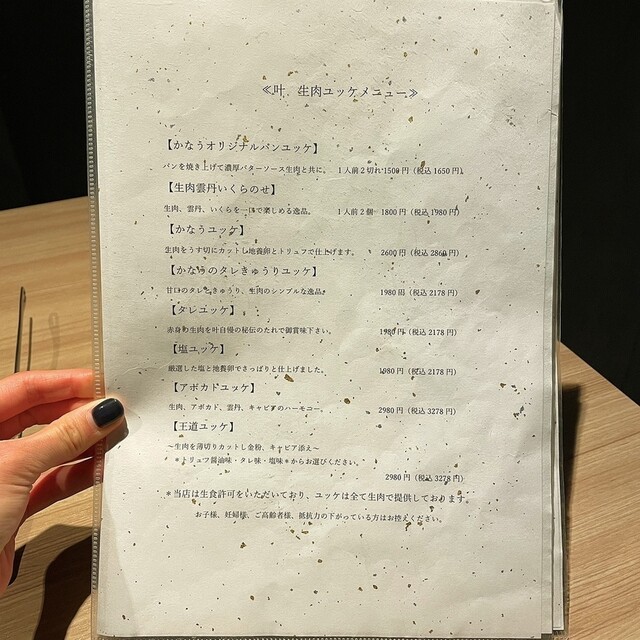 ≪叶 生肉ユッケメニュー≫
【かなうオリジナルパンユッケ】
パンを焼き上げて濃厚バターソース生肉と共に。 1人前2切れ1500円(税込1650円)
【生肉雲丹いくらのせ】
生肉、雲丹、いくらを一口で楽しめる逸品。 1人前2個 1800円(税込1980円)
【かなうユッケ】
生肉をうす切にカットし地養卵とトリュフで仕上げます。 2600円(税込2860円)
【かなうのタレきゅうりユッケ】
甘口のタレときゅうり、生肉のシンプルな逸品。 1980円(税込2178円)
【タレユッケ】
赤身の生肉を叶自慢の秘伝のたれで御賞味下さい。 1980円(税込2178円)
【塩ユッケ】
厳選した塩と地養卵でさっぱりと仕上げました。 1980円(税込2178円)
【アボカドユッケ】
生肉、アボカド、雲丹、キャビアのハーモニー。 2980円(税込3278円)
【王道ユッケ】
~生肉を薄切りカットし金粉、キャビア添え~
*トリュフ醤油味・タレ味・塩味*からお選びください。
2980円(税込3278円)
*当店は生食許可をいただいており、ユッケは全て生肉で提供しております。
お子様、妊婦様、ご高齢者様、抵抗力の下がっている方はお控えください。